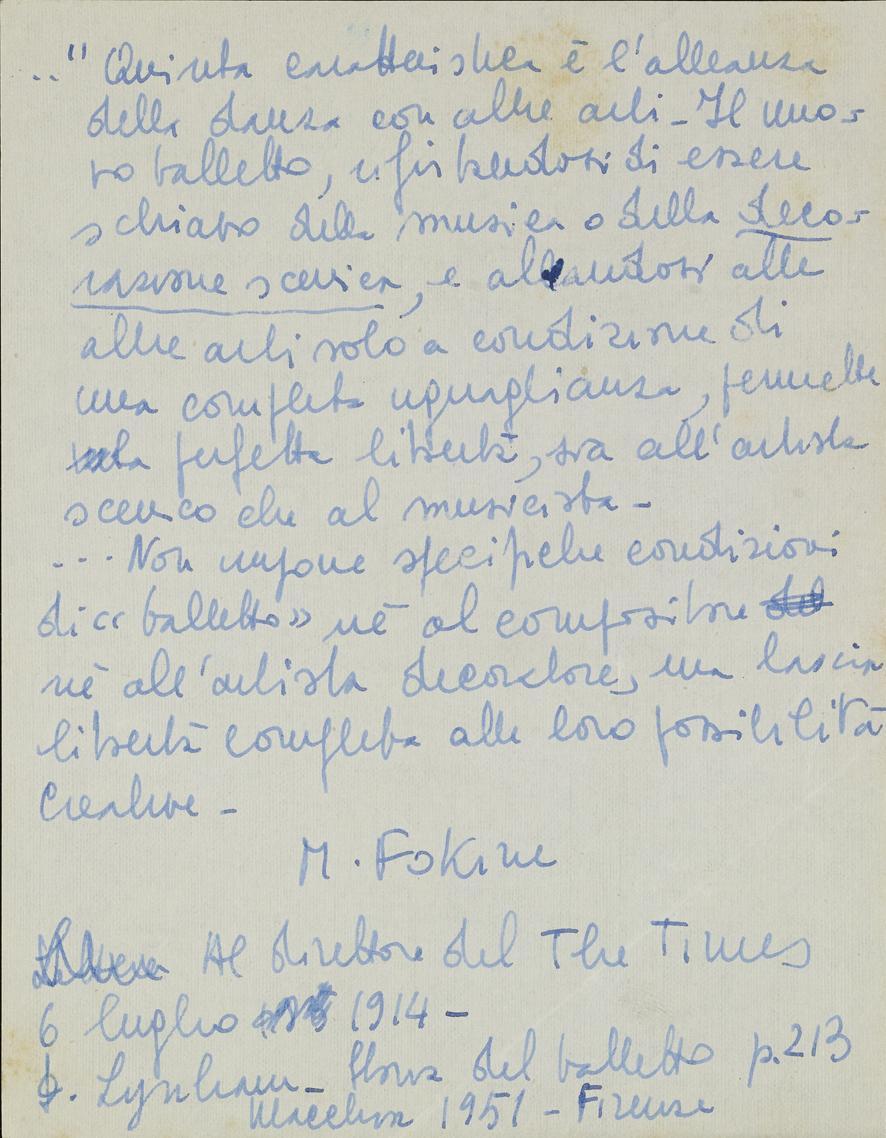 .." Quinta caratteristica è l'alleanza
della danza con altre arti - Il nuo-
vo balletto, rifiutandosi di essere
schiavo della musica o della deco-
razione scenica, e alleandosi alle
altre arti solo a condizione di
una completa uguaglianza, permette
perfetta libertà, sia all'artista
scenico che al musicista -
... Non impone specifiche condizioni
di << balletto >> nè al compositore del
nè all'artista decoratore, ma lascia
libertà completa alle loro possibilità
creative -
M. Fokine
Lettera Al direttore del The Times
6 luglio 1914 -
Lynham - Storia del balletto p. 213
Macchia 1951 - Firenze